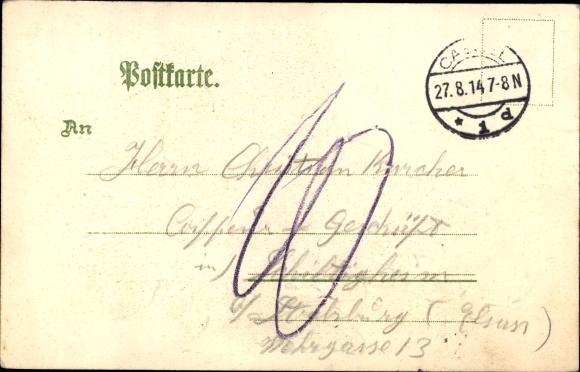 Postkarte.
CASSEL
27.8.14 7-8N
* 1 d
An
10
Herrn Christian Karcher
Coiffeur – Geschäft
in Schiltigheim
b/ Straßburg (Elsass)
Wehrgasse 13